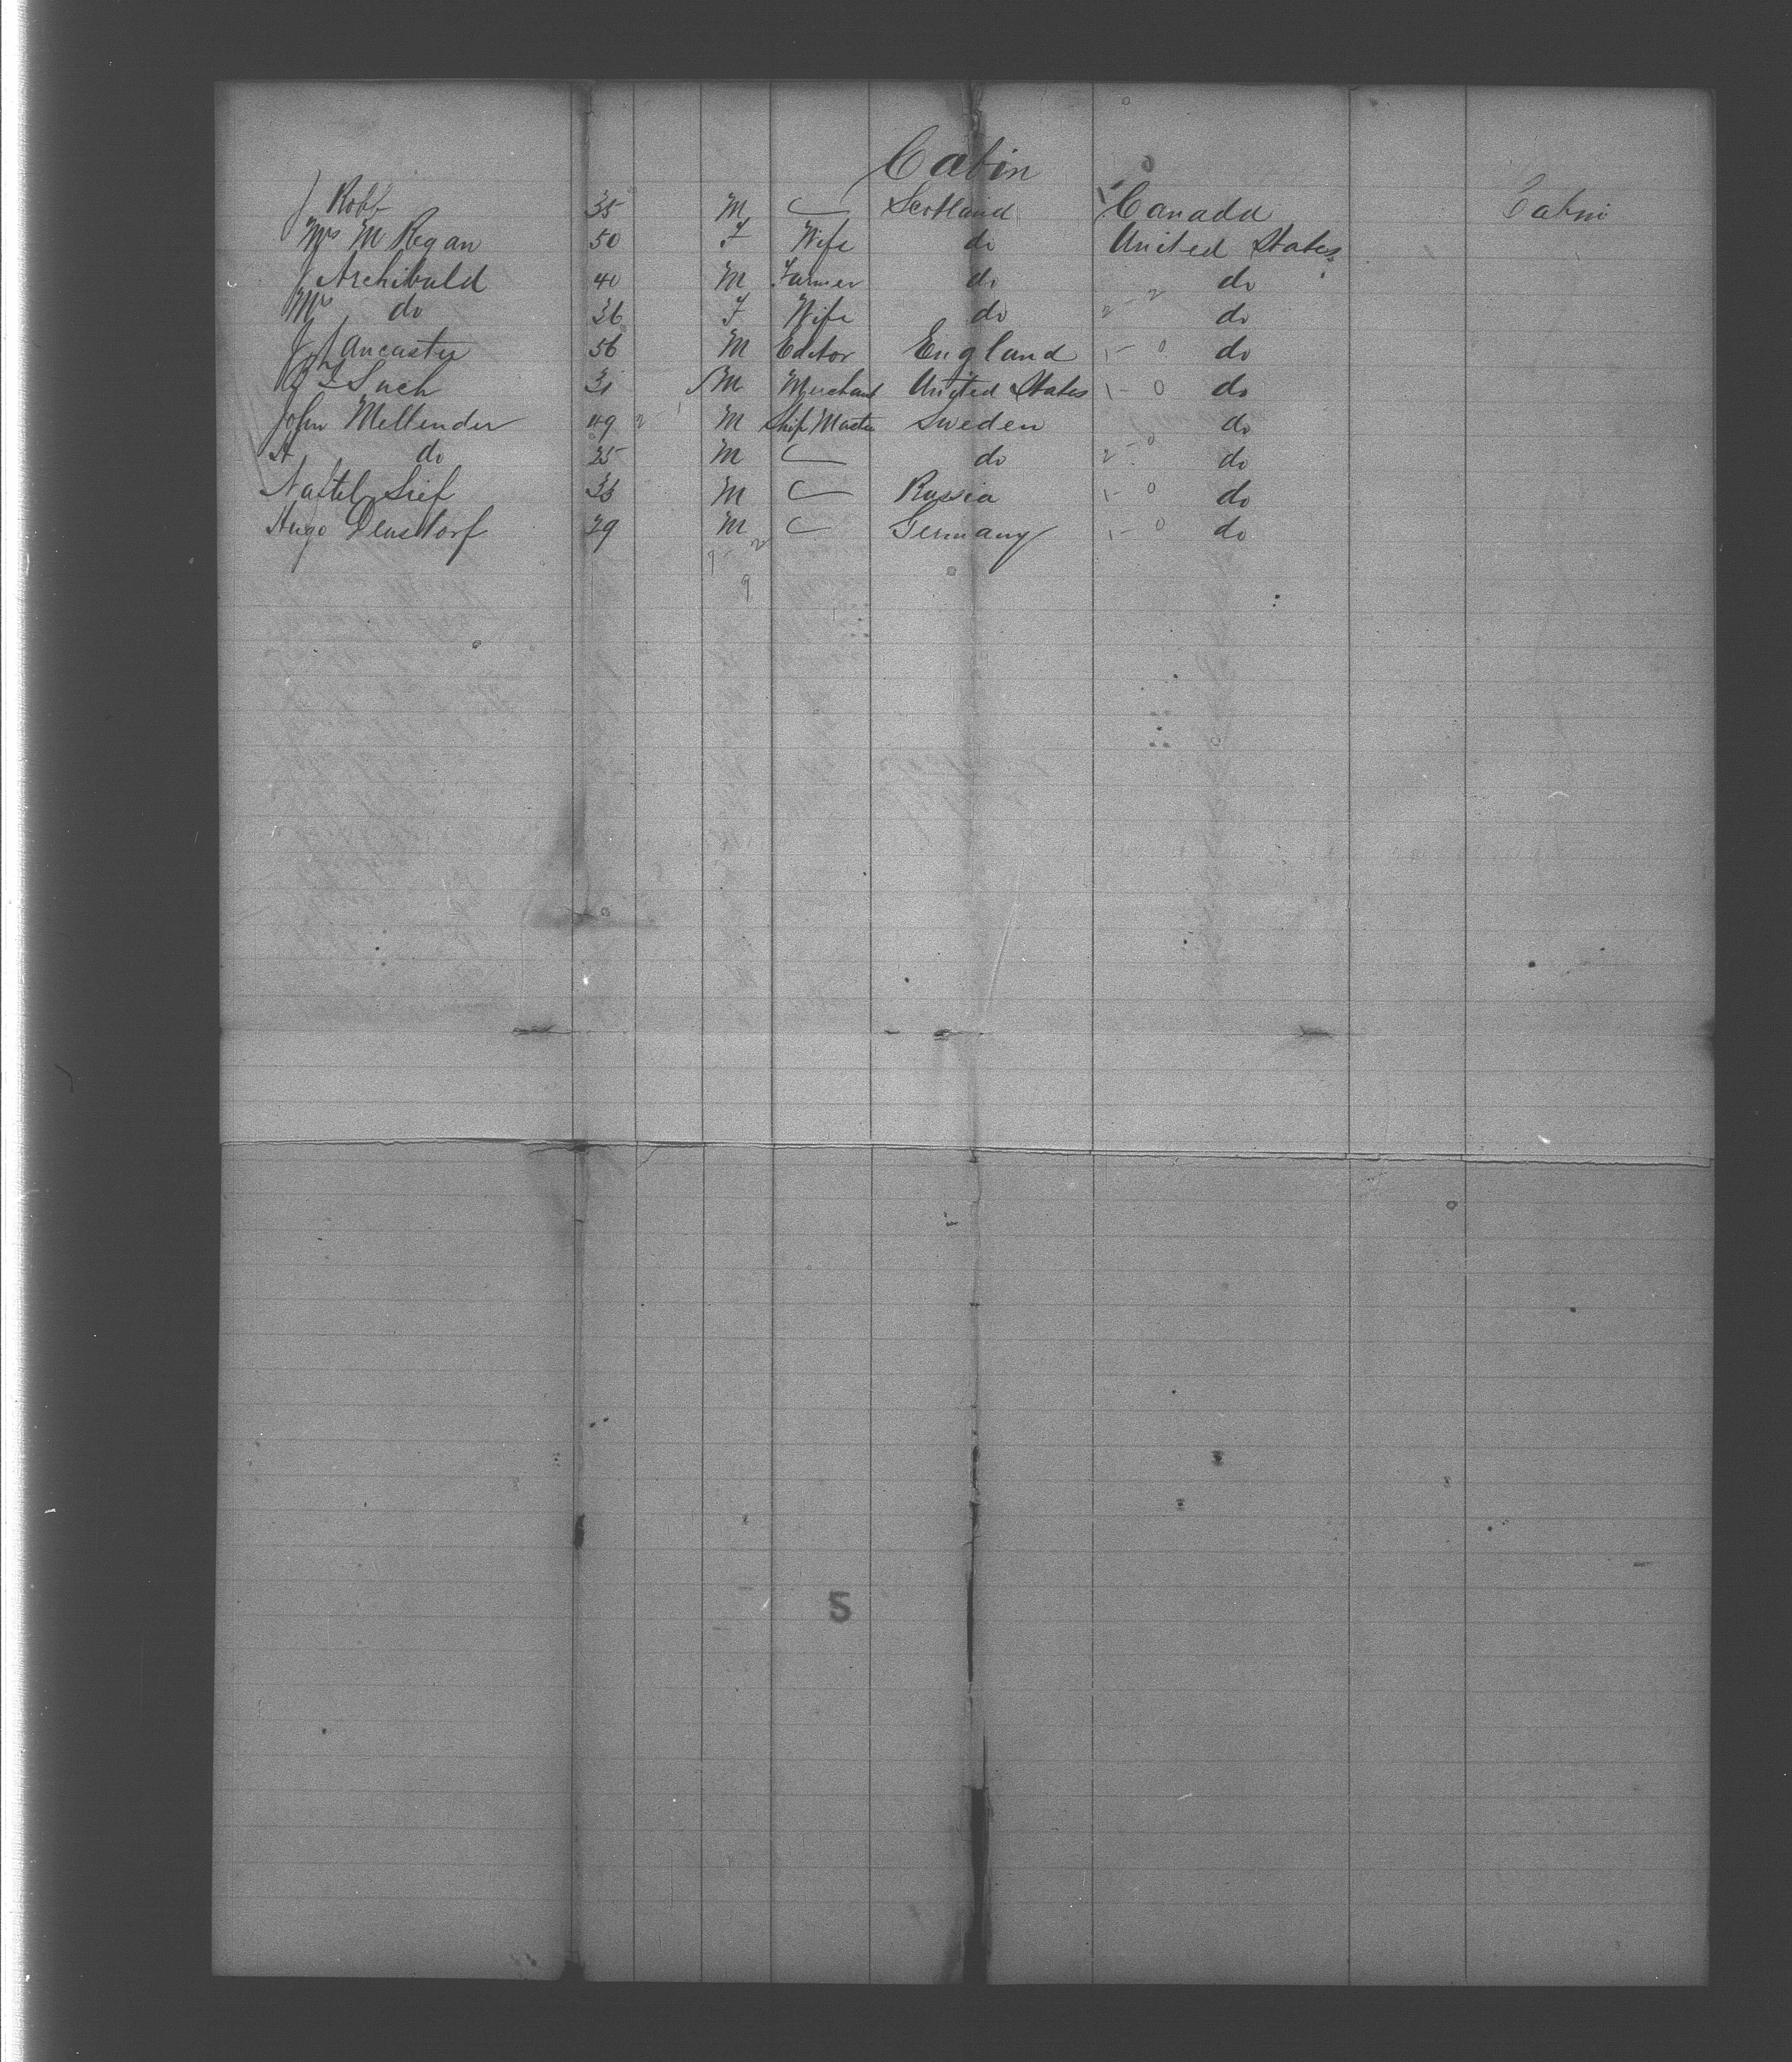 Cabin
J Robb 35 M Scotland Canada Cabin
Mrs M Regan 50 F Wife do United States
J Archibald 40 M Farmer do do
Mrs do 36 F Wife do 2-2 do
J Lancaster 56 M Editor England 1-0 do
Such 31 M Merchant United States 1-0 do
John Mellender 49 M Ship Master Sweden do
A do 25 M do 2-0 do
Sief 33 M Russia 1-0 do
Hugo Densdorf 29 M Germany 1-0 do
9-2
9
5